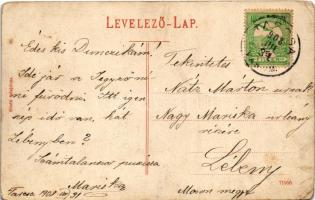 LEVELEZŐ-LAP.
Édes kis Dunczikám!
Ide jár a Jegyzőné
mi fürödni. Itt igen
szép idő van, hát
Lébenyben?
Számtalanszor puszil
Mariska
Tarcsa 1908
Tekintetes
Nátz Márton urnak
Nagy Mariska urleány
részére
Lébeny
Moson megye